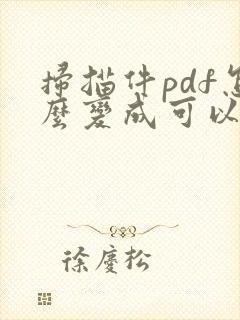 掃描件pdf怎
麼變成可以
徐慶松